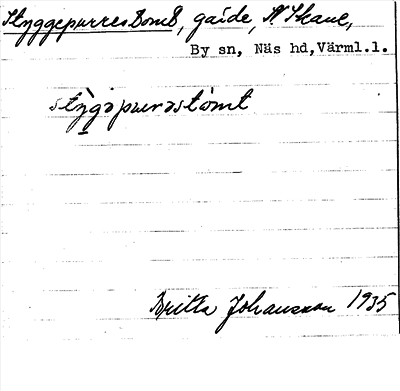 Styggepurrestomt, gärde, N Skane,
By sn, Näs hd, Värml.l.
stỳgəpurəstòmt
Britta Johansson 1935